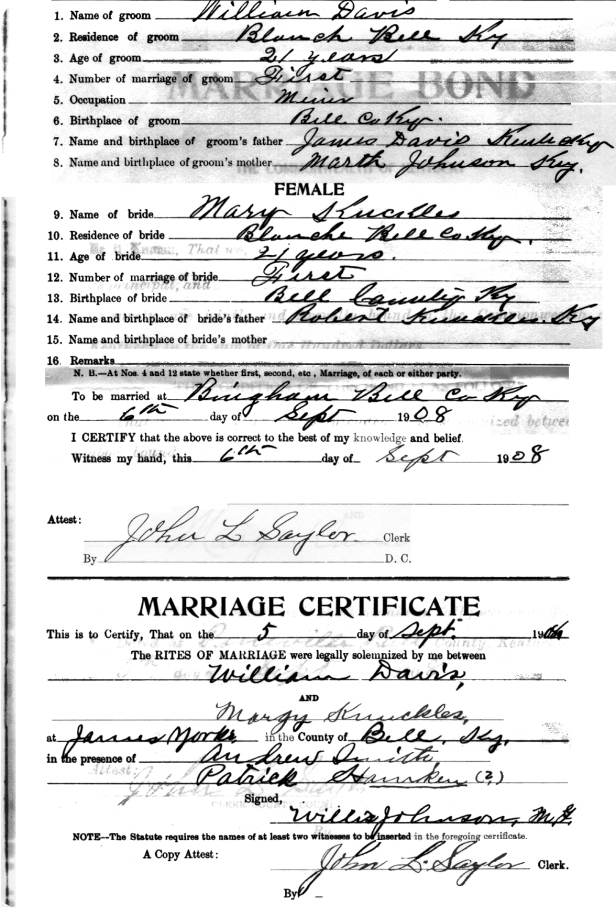 1. Name of groom William Davis
2. Residence of groom Blanch Bell Ky
3. Age of groom 21 years
4. Number of marriage of groom First
MARRIAGE BOND
5. Occupation Miner
6. Birthplace of groom Bell Co Ky.
7. Name and birthplace of groom's father James Davis Kentucky
8. Name and birthplace of groom's mother Marth Johnson Ky.
FEMALE
9. Name of bride Mary Knuckles
10. Residence of bride Blanche Bell Co Ky.
11. Age of bride 21 years.
12. Number of marriage of bride First
13. Birthplace of bride Bell County Ky
14. Name and birthplace of bride's father Robert Knuckles Ky
15. Name and birthplace of bride's mother
16 Remarks
N. B.—At Nos. 4 and 12 state whether first, second, etc, Marriage, of each or either party.
To be married at Bingham Bell Co Ky
on the 6th day of Sept 1908
I CERTIFY that the above is correct to the best of my knowledge and belief.
Witness my hand, this 6th day of Sept 1908
Attest: John L Saylor. Clerk
By D. C.
MARRIAGE CERTIFICATE
This is to Certify, That on the 5 day of Sept. 190
The RITES OF MARRIAGE were legally solemnized by me between
William Davis,
AND
Margy Knuckles,
at James York in the County of Bell, Ky,
in the presence of Andrew Smith,
Patrick (?)
Signed, Willis Johnson, M.G.
NOTE--The Statute requires the names of at least two witnesses to be inserted in the foregoing certificate.
A Copy Attest: John L. Saylor Clerk.
By